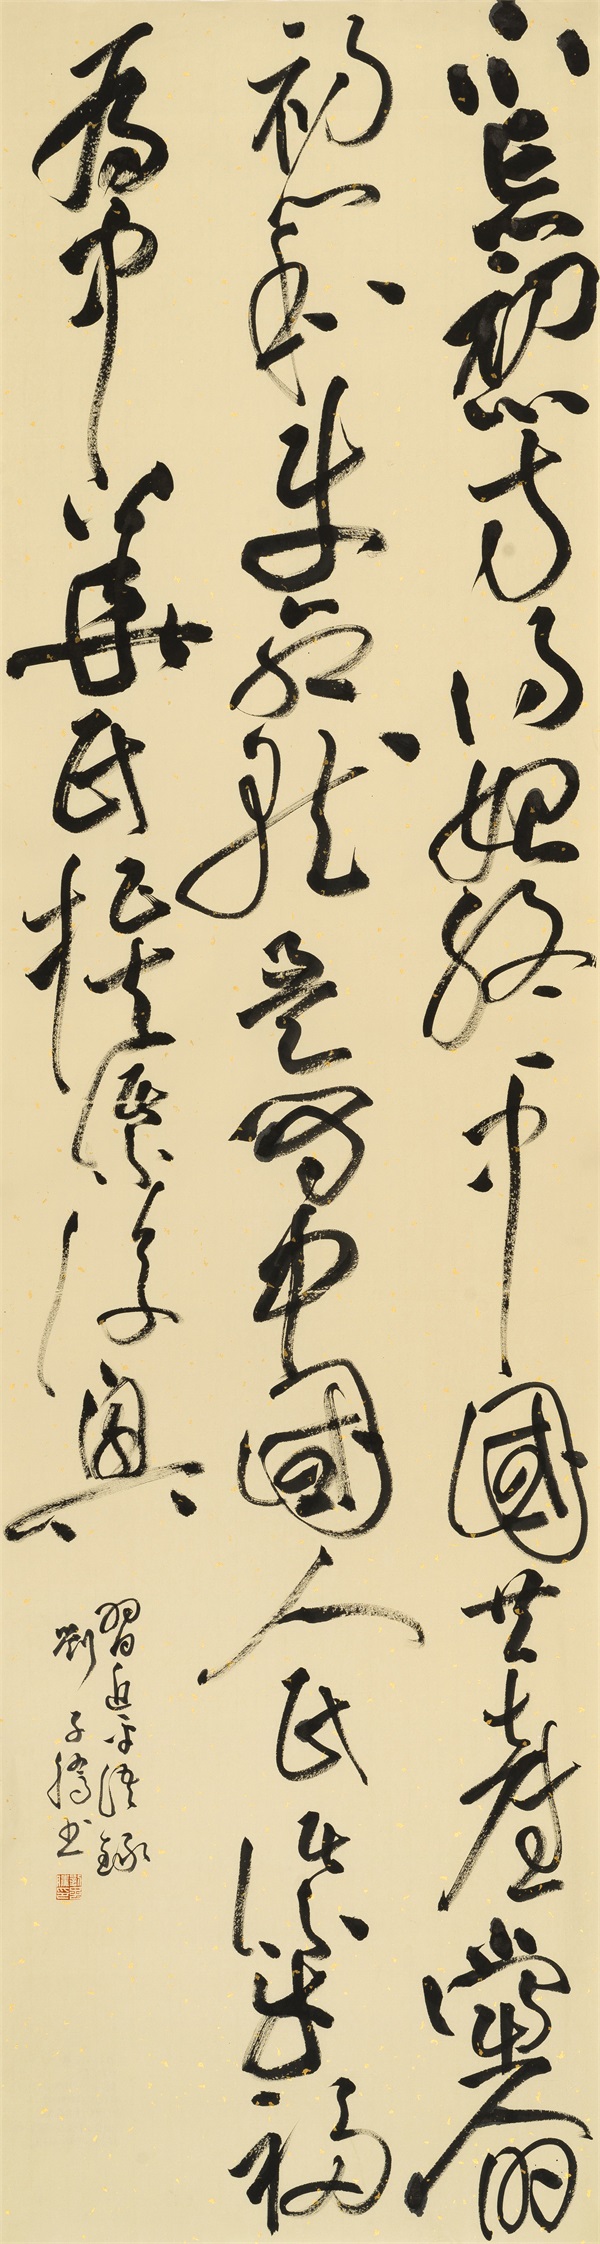 不忘初心方得始終中國共產黨人的
初心和使命就是為中國人民謀幸福
為中華民族謀復興
習近平語錄
劉子騰書